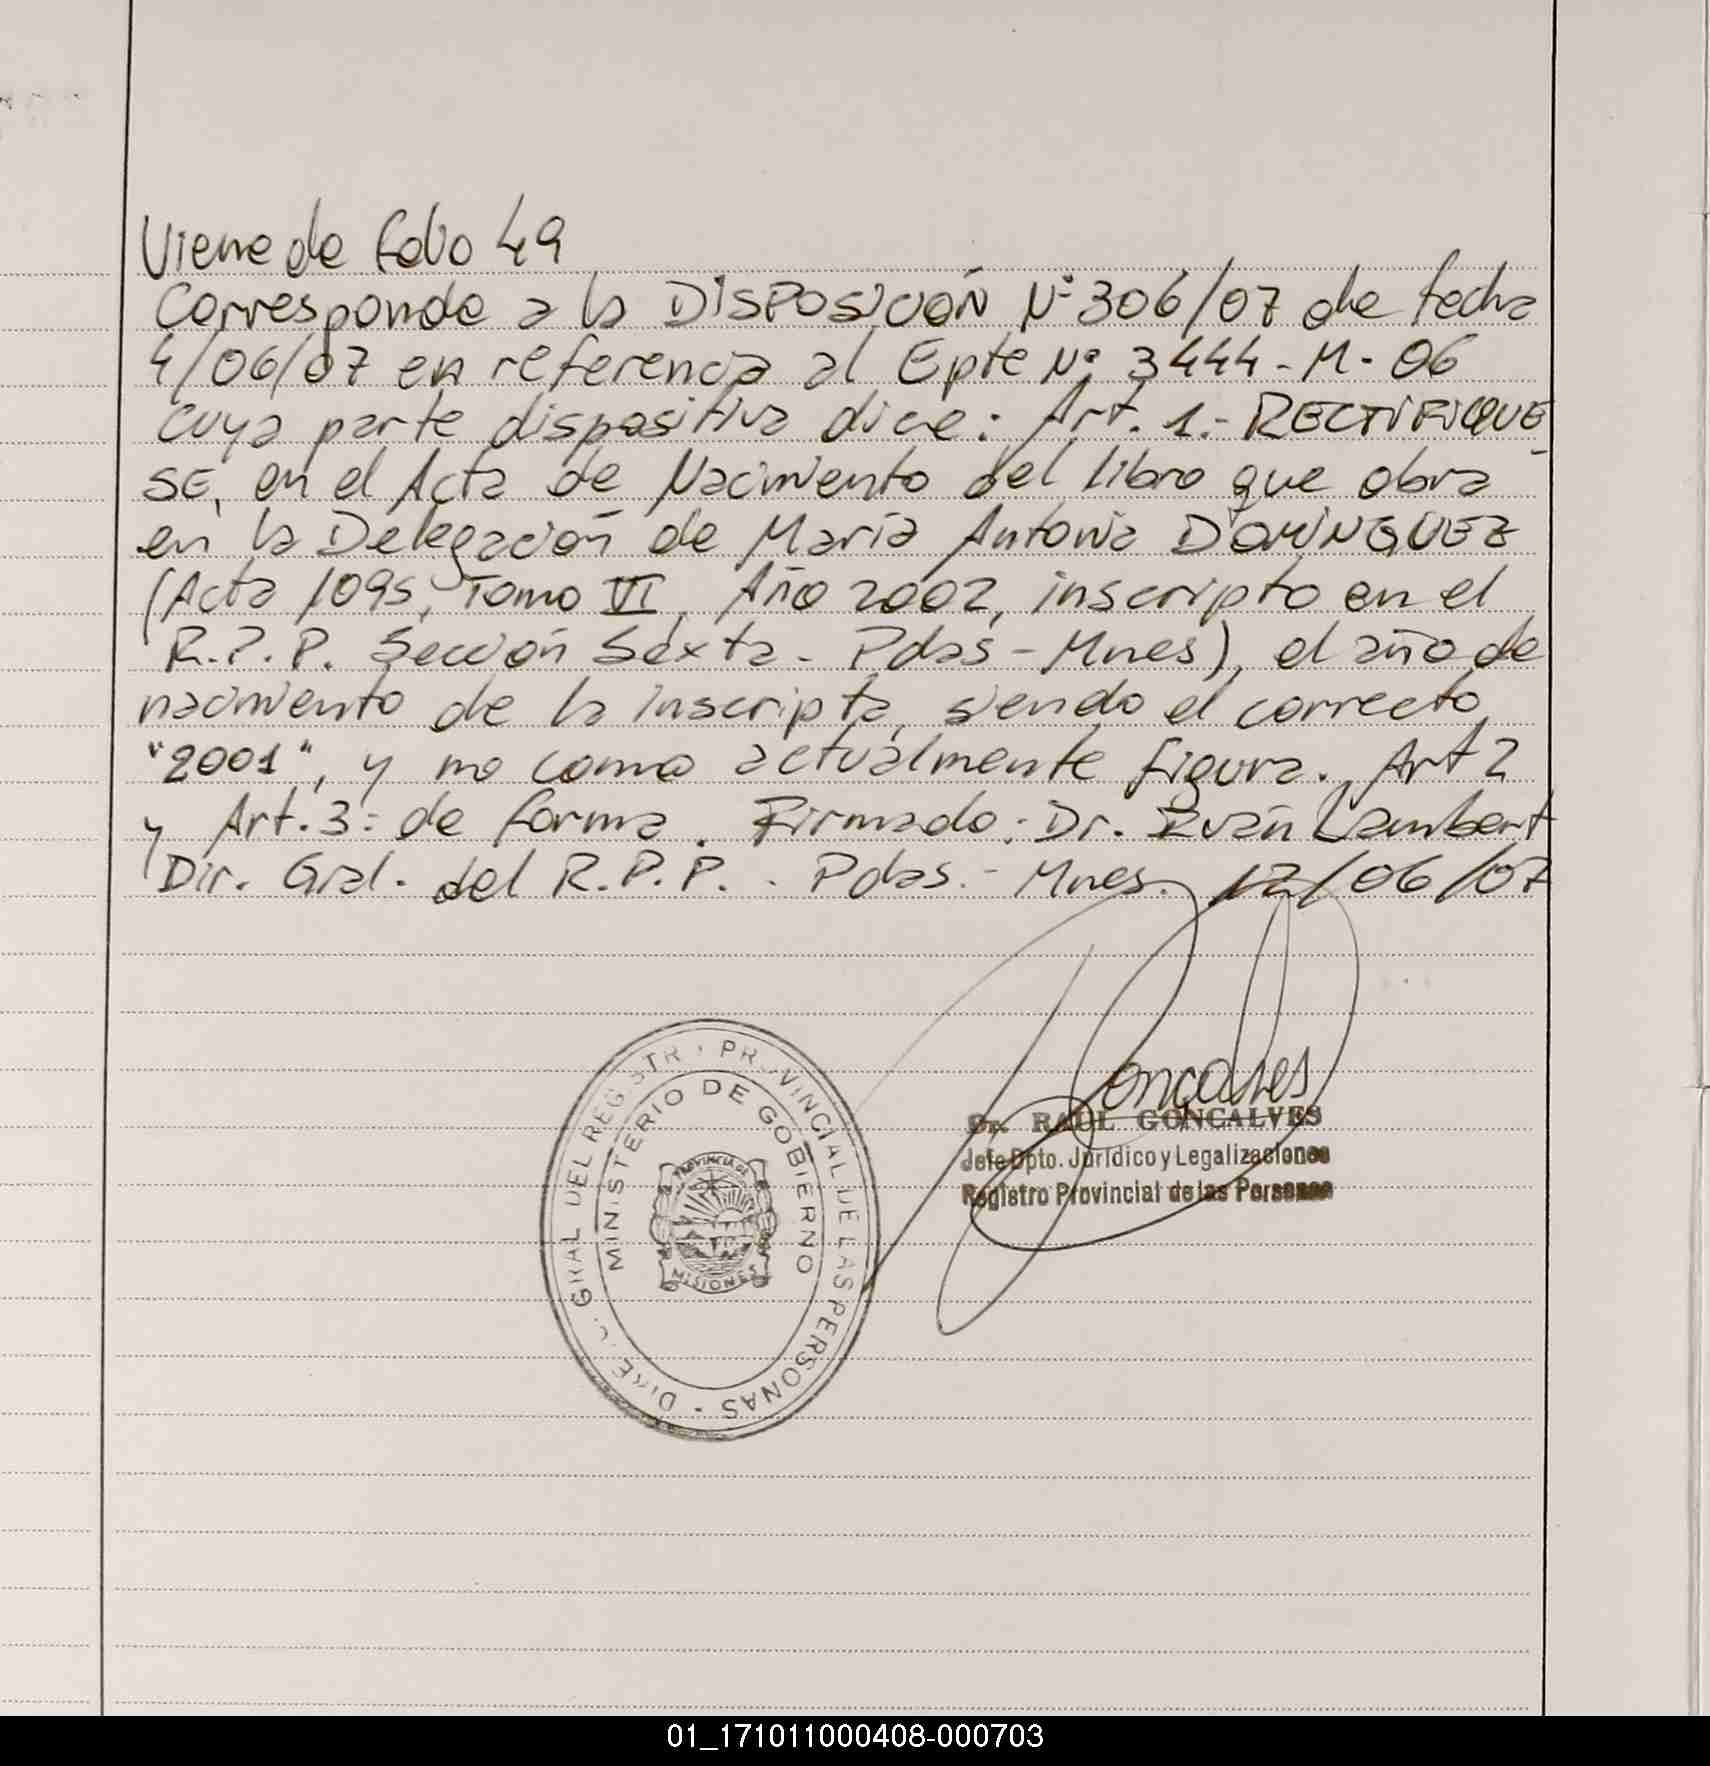 Viene de folio 49
Corresponde a la DISPOSICIÓN Nº 306/07 de fecha
4/06/07 en referencia al Epte Nº 3444-M-06
cuya parte dispositiva dice: Art. 1.- RECTIFIQUE-
SE, en el Acta de Nacimiento del libro que obra
en la Delegación de María Antonia DOMINGUEZ
(Acta 1095, Tomo VI, Año 2002, inscripto en el
R.P.P. Sección Sexta - Pdas - Mnes), el año de
nacimiento de la inscripta, siendo el correcto
"2001", y no como actualmente figura. Art 2
y Art. 3: de forma. Firmado: Dr. Iván Lambert
Dir. Gral. del R.P.P. - Pdas. - Mnes. 12/06/07
Goncalves
Dr. RAUL GONCALVES
Jefe Dpto. Jurídico y Legalizaciones
Registro Provincial de las Personas
DIREC. GRAL DEL REGISTRO PROVINCIAL DE LAS PERSONAS -
MINISTERIO DE GOBIERNO
PROVINCIA DE
MISIONES
01_171011000408-000703